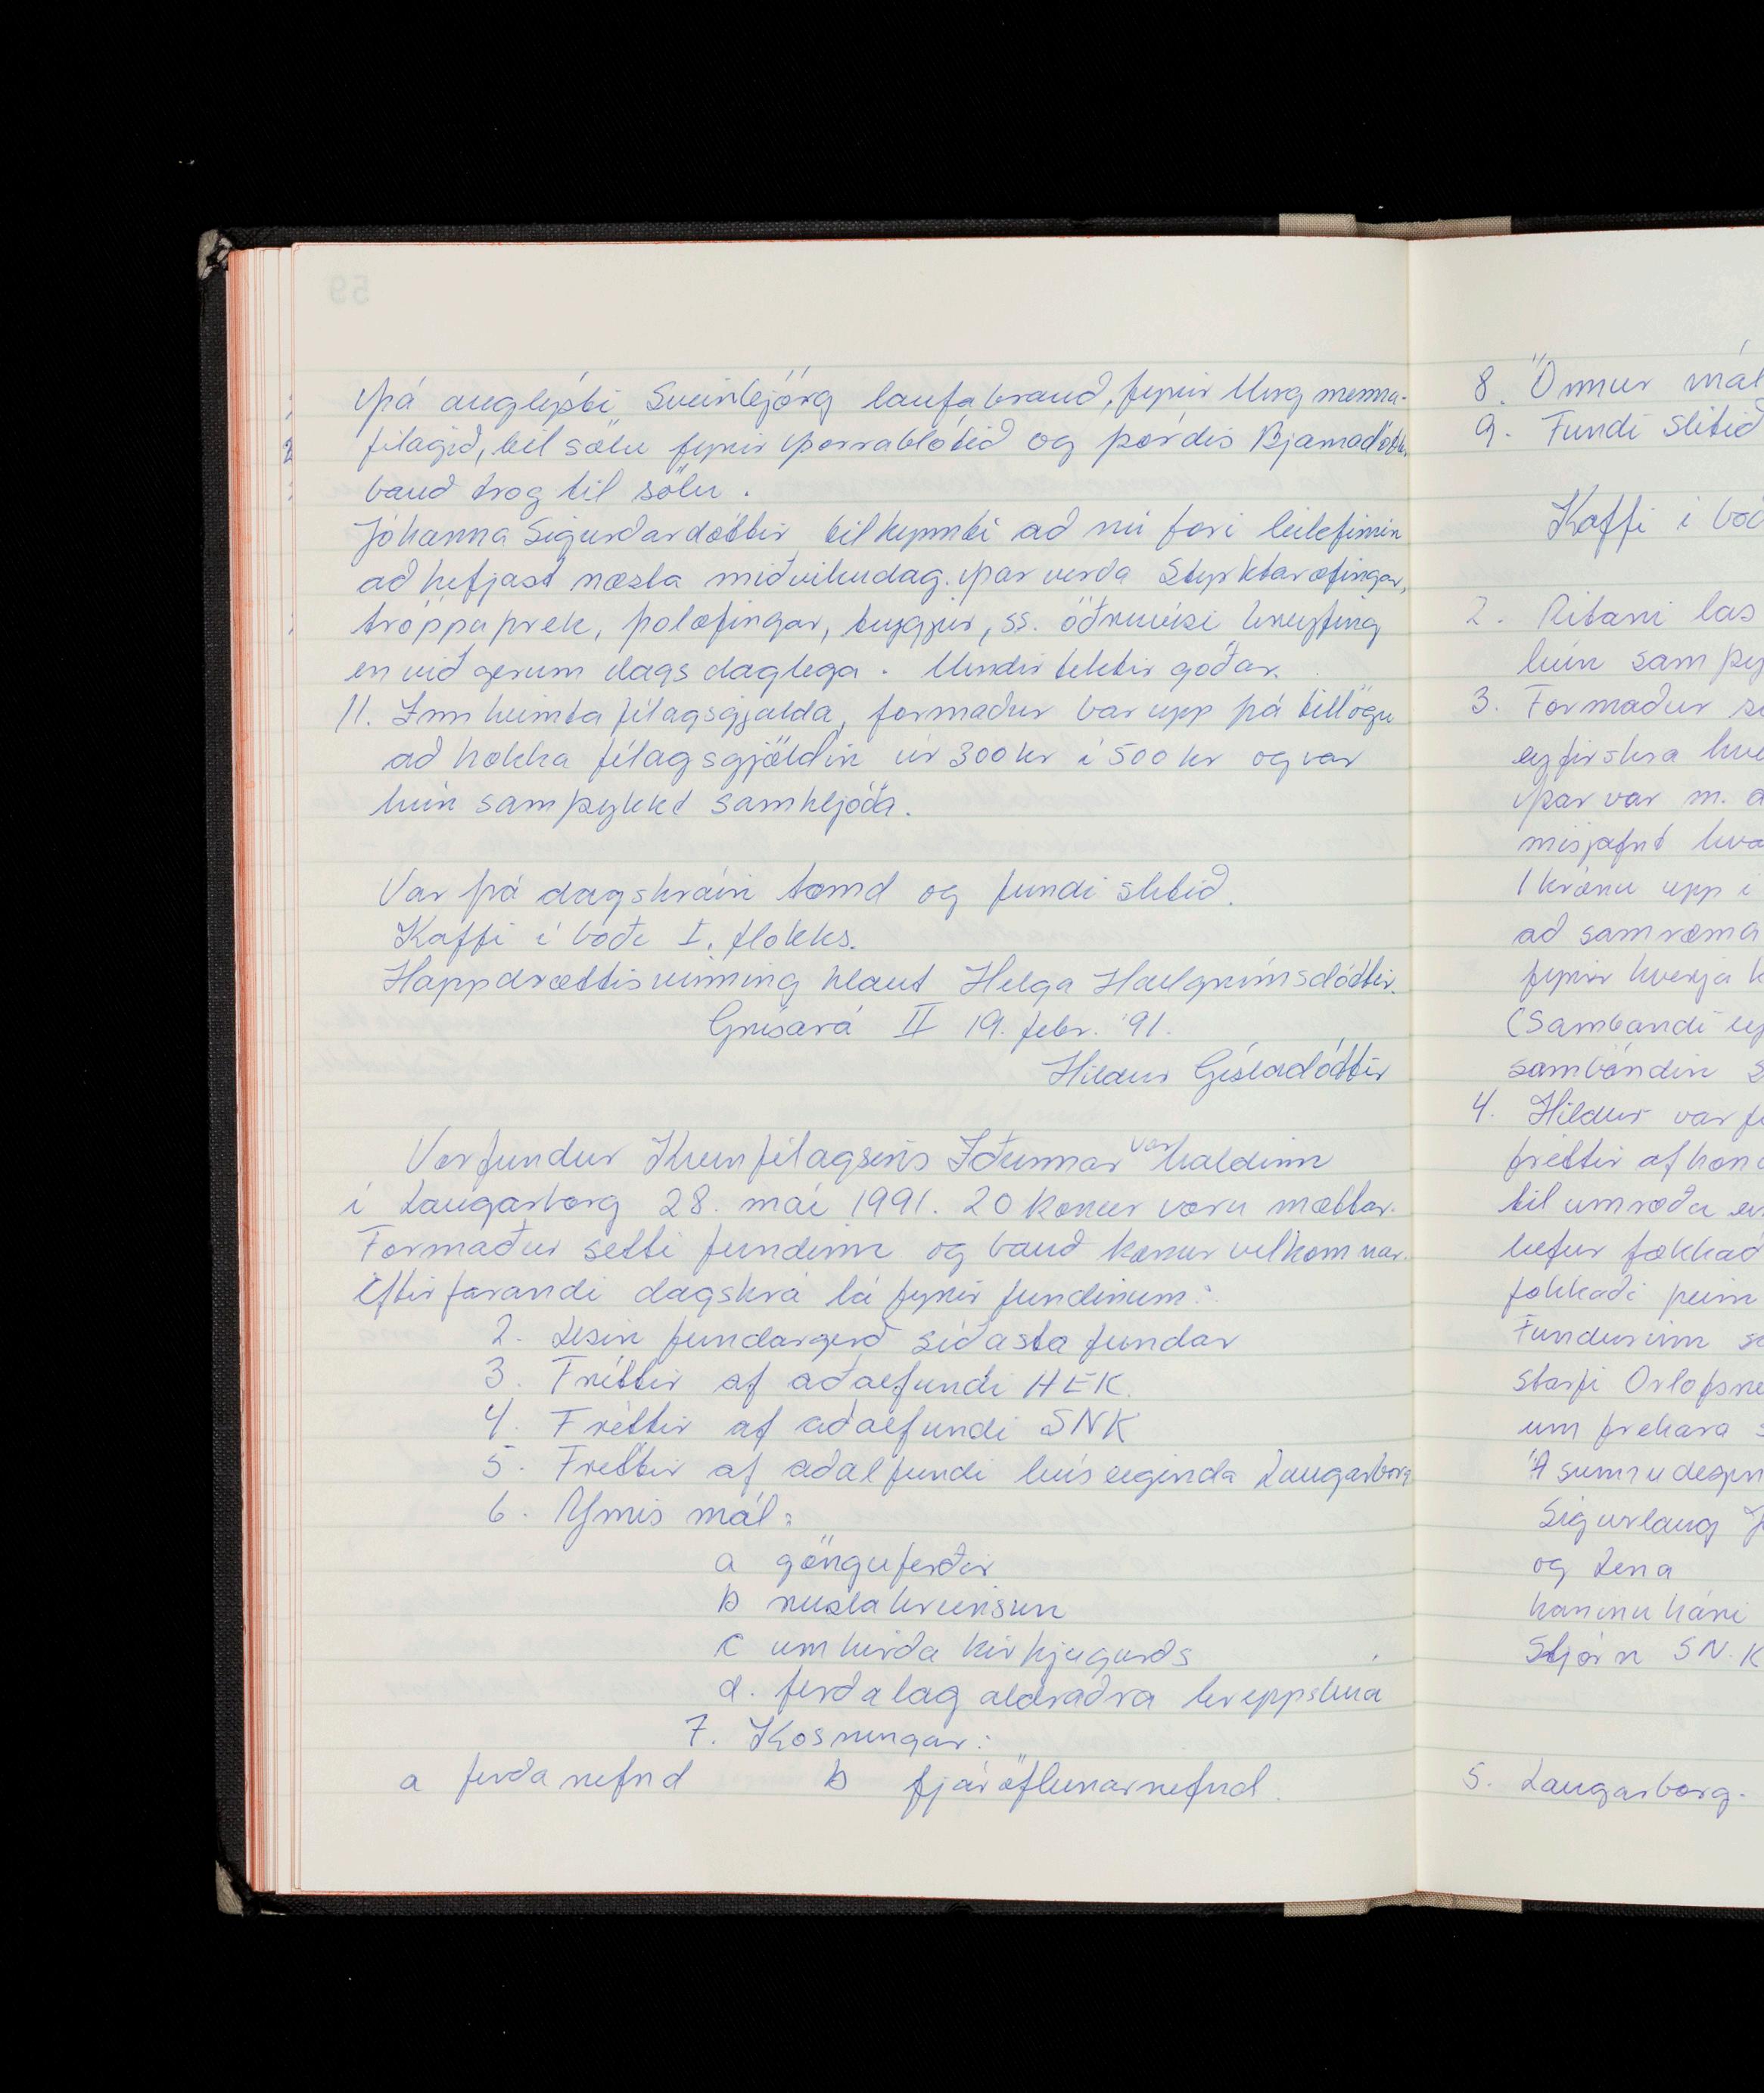 Þá auglýsti Sveinbjörg laufabrauð, fyrir Ungmenna-
félagið, til sölu fyrir þorrablótið og Þórdís Bjarnadóttir
bauð trog til sölu.
Jóhanna Sigurðardóttir tilkynnti að nú færi leikfimin
að hefjast næsta miðvikudag. Þar verða styrktaræfingar,
tröppuþrek, þolæfingar, teygjur, ss. öðruvísi hreyfing
en við gerum dags daglega. Undirtektir góðar.
11. Innheimta félagsgjalda, formaður bar upp þá tillögu
að hækka félagsgjöldin úr 300 kr í 500 kr og var
hún samþykkt samhljóða.
Var þá dagskráin tæmd og fundi slitið.
Kaffi í boði I. flokks.
Happdrættisvinning hlaut Helga Hallgrímsdóttir.
Grísará II 19. febr. '91.
Hildur Gísladóttir
Vorfundur Kvenfélagsins Iðunnar var haldinn
í Laugarborg 28. maí 1991. 20 konur voru mættar.
Formaður setti fundinn og bauð konur velkomnar.
Eftirfarandi dagskrá lá fyrir fundinum:
2. Lesin fundargerð síðasta fundar
3. Fréttir af aðalfundi HEK.
4. Fréttir af aðalfundi SNK
5. Fréttir af aðalfundi húseiginda Laugarborg
6. Ýmis mál:
a gönguferðir
b ruslahreinsun
c umhirða kirkjugarðs
d. ferðalag aldraðra hreppsbúa
7. Kosningar:
a ferðanefnd b fjáröflunarnefnd.
8. Önnur mál
9. Fundi slitið
Kaffi í boð
2. Ritari las
hún samþy
3. Formaður
eyfirskra
Þar var m. a
misjafnt
1 krónu upp í
að samræma
fyrir hverja
(Sambandi ey
samböndin
4. Hildur var
fréttir af
til umræða
hefur fækkað
fækkaði þeim
Fundurinn
starfi Orlofsne
um frekara
Á sumru
Sigurlaug
og Lena
Stjórn SN.K
5. Laugarborg.